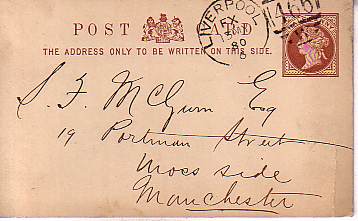 POST CARD
THE ADDRESS ONLY TO BE WRITTEN ON THIS SIDE.
LIVERPOOL
EX
80
466
S. F. McGurn Esq
19 Portman Street
Moss side
Manchester